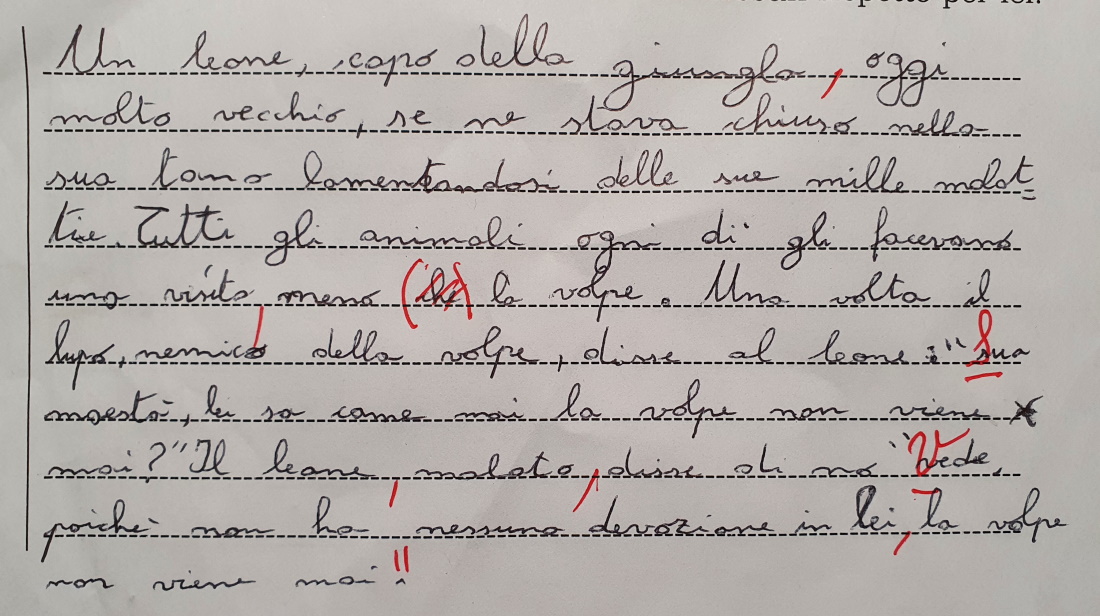 Un leone, capo della giungla, oggi
molto vecchio, se ne stava chiuso nella
sua tana lamentandosi delle sue mille malat=
tie. Tutti gli animali ogni dì gli facevano
una visita meno la volpe. Una volta il
lupo, nemico della volpe, disse al leone: "Sua
maestà, lei sa come mai la volpe non viene
mai?" Il leone, malato, disse di no "Vede,
poichè non ha nessuna devozione in lei, la volpe
non viene mai!"